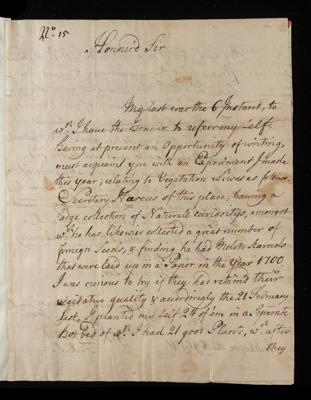 No 15
Honour'd Sir
My last was the 6 Instant, to
wch. I have the Honour to referr my Self,
being at present an Opportunity of writing,
must acquaint you with an Experiment I made
this year, relating to Vegetation which was as follows.
Secretary of this place, having a
large collection of Naturall curiositys, amongst
wch. he has likewise collected a great number of
foreign Seeds, & finding he had Melon Karnols
that were laid up in a Paper in the Year 1700
I was curious to try if they had retain'd their
vegitative quality & accordingly the 21 February
last, I planted my Self 24 of em in a Seperate
Hot bed of wch. I had 21 good Plants, wch. after
they